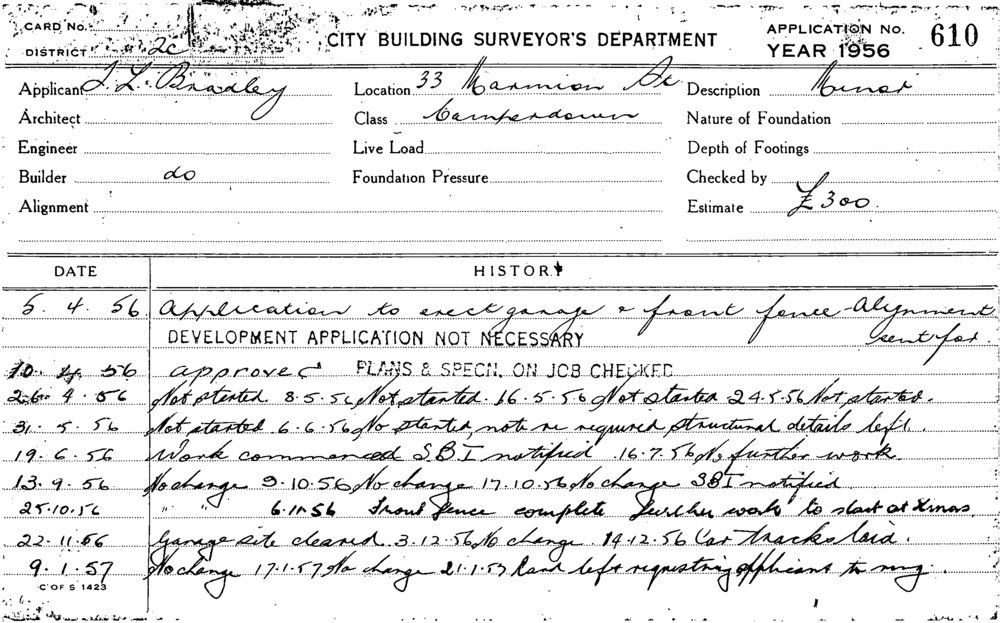 CARD No.
DISTRICT 2c
CITY BUILDING SURVEYOR'S DEPARTMENT
APPLICATION No. 610
YEAR 1956
Applicant J. L. Bradley
Location 33 Marmion St
Description Minor
Architect
Class Camperdown
Nature of Foundation
Engineer
Live Load
Depth of Footings
Builder do
Foundation Pressure
Checked by
Alignment
Estimate £300.
DATE HISTORY
5. 4. 56 Application to erect garage & front fence - Alignment
DEVELOPMENT APPLICATION NOT NECESSARY sent for.
10 4 56 approved PLANS & SPECN. ON JOB CHECKED
26 4. 56 Not started 8.5.56 Not started. 16.5.56 Not started 24.5.56 Not started.
31. 5. 56 Not started 6.6.56 No started, note re required structural details left.
19. 6. 56 Work commenced SBI notified 16.7.56 No further work.
13. 9. 56 No change 9.10.56 No change 17.10.56 No change SBI notified.
25.10.56 " " 6.11.56 Front fence complete Further work to start at Xmas.
22.11.56 Garage site cleared 3.12.56 No change 14.12.56 Car tracks laid.
9.1.57 No change 17.1.57 No change 21.1.57 Card left requesting applicant to ring.
C OF S 1423